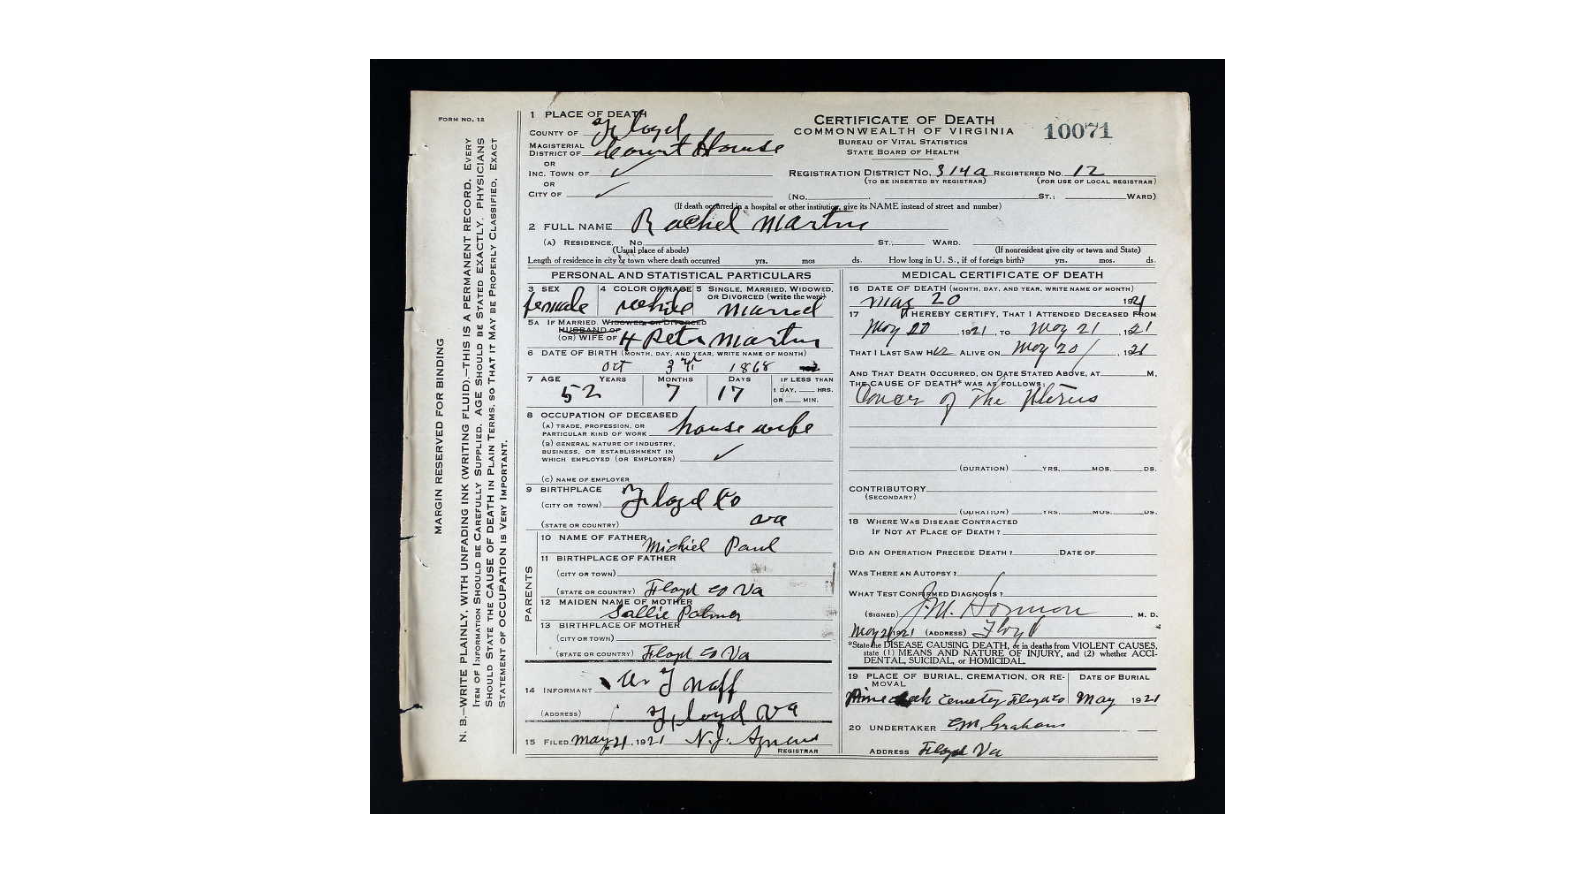 FORM NO. 12
MARGIN RESERVED FOR BINDING
N. B.—WRITE PLAINLY, WITH UNFADING INK (WRITING FLUID).—THIS IS A PERMANENT RECORD. EVERY
ITEM OF INFORMATION SHOULD BE CAREFULLY SUPPLIED. AGE SHOULD BE STATED EXACTLY. PHYSICIANS
SHOULD STATE THE CAUSE OF DEATH IN PLAIN TERMS, SO THAT IT MAY BE PROPERLY CLASSIFIED. EXACT
STATEMENT OF OCCUPATION IS VERY IMPORTANT.
1 PLACE OF DEATH
COUNTY OF Floyd
MAGISTERIAL
DISTRICT OF Court House
OR
INC. TOWN OF ✓
OR
CITY OF ✓
CERTIFICATE OF DEATH
COMMONWEALTH OF VIRGINIA
BUREAU OF VITAL STATISTICS
STATE BOARD OF HEALTH
10071
REGISTRATION DISTRICT NO. 314a REGISTERED NO. 12
(TO BE INSERTED BY REGISTRAR) (FOR USE OF LOCAL REGISTRAR)
(No. ST.; WARD)
(If death occurred in a hospital or other institution, give its NAME instead of street and number)
2 FULL NAME Rachel Martin
(A) RESIDENCE. No. ST., WARD.
(Usual place of abode) (If nonresident give city or town and State)
Length of residence in city or town where death occurred yrs. mos ds. How long in U. S., if of foreign birth? yrs. mos. ds.
PERSONAL AND STATISTICAL PARTICULARS
3 SEX 4 COLOR OR RACE 5 SINGLE, MARRIED, WIDOWED,
OR DIVORCED (write the word)
female white married
5A IF MARRIED, WIDOWED, OR DIVORCED
HUSBAND OF
(OR) WIFE OF H Peter Martin
6 DATE OF BIRTH (MONTH, DAY, AND YEAR, WRITE NAME OF MONTH)
Oct 3 1868
7 AGE YEARS MONTHS DAYS IF LESS THAN
1 DAY, HRS.
OR MIN.
52 7 17
8 OCCUPATION OF DECEASED
(A) TRADE, PROFESSION, OR
PARTICULAR KIND OF WORK house wife
(B) GENERAL NATURE OF INDUSTRY,
BUSINESS, OR ESTABLISHMENT IN
WHICH EMPLOYED (OR EMPLOYER) ✓
(C) NAME OF EMPLOYER
9 BIRTHPLACE
(CITY OR TOWN) Floyd Co
(STATE OR COUNTRY) Va
PARENTS
10 NAME OF FATHER Michiel Paul
11 BIRTHPLACE OF FATHER
(CITY OR TOWN)
(STATE OR COUNTRY) Floyd Co Va
12 MAIDEN NAME OF MOTHER
Sallie Palmer
13 BIRTHPLACE OF MOTHER
(CITY OR TOWN)
(STATE OR COUNTRY) Floyd Co Va
14 INFORMANT W J Naff
(ADDRESS) Floyd Va
15 FILED May 21, 1921 N. J. Agnew
REGISTRAR
MEDICAL CERTIFICATE OF DEATH
16 DATE OF DEATH (MONTH, DAY, AND YEAR, WRITE NAME OF MONTH)
May 20 1921
17 I HEREBY CERTIFY, THAT I ATTENDED DECEASED FROM
May 20, 1921, TO May 21, 1921
THAT I LAST SAW HER ALIVE ON May 20, 1921
AND THAT DEATH OCCURRED, ON DATE STATED ABOVE, AT M,
THE CAUSE OF DEATH* WAS AS FOLLOWS:
Cancer of the Uterus
(DURATION) YRS. MOS. DS.
CONTRIBUTORY
(SECONDARY)
(DURATION) YRS. MOS. DS.
18 WHERE WAS DISEASE CONTRACTED
IF NOT AT PLACE OF DEATH?
DID AN OPERATION PRECEDE DEATH? DATE OF
WAS THERE AN AUTOPSY?
WHAT TEST CONFIRMED DIAGNOSIS?
(SIGNED) J. M. M. D.
May 21, 1921 (ADDRESS) Floyd
*State the DISEASE CAUSING DEATH, or in deaths from VIOLENT CAUSES,
state (1) MEANS AND NATURE OF INJURY, and (2) whether ACCI-
DENTAL, SUICIDAL, or HOMICIDAL.
19 PLACE OF BURIAL, CREMATION, OR RE-
MOVAL DATE OF BURIAL
Cemetery Floyd Co May 1921
20 UNDERTAKER Graham
ADDRESS Floyd Va